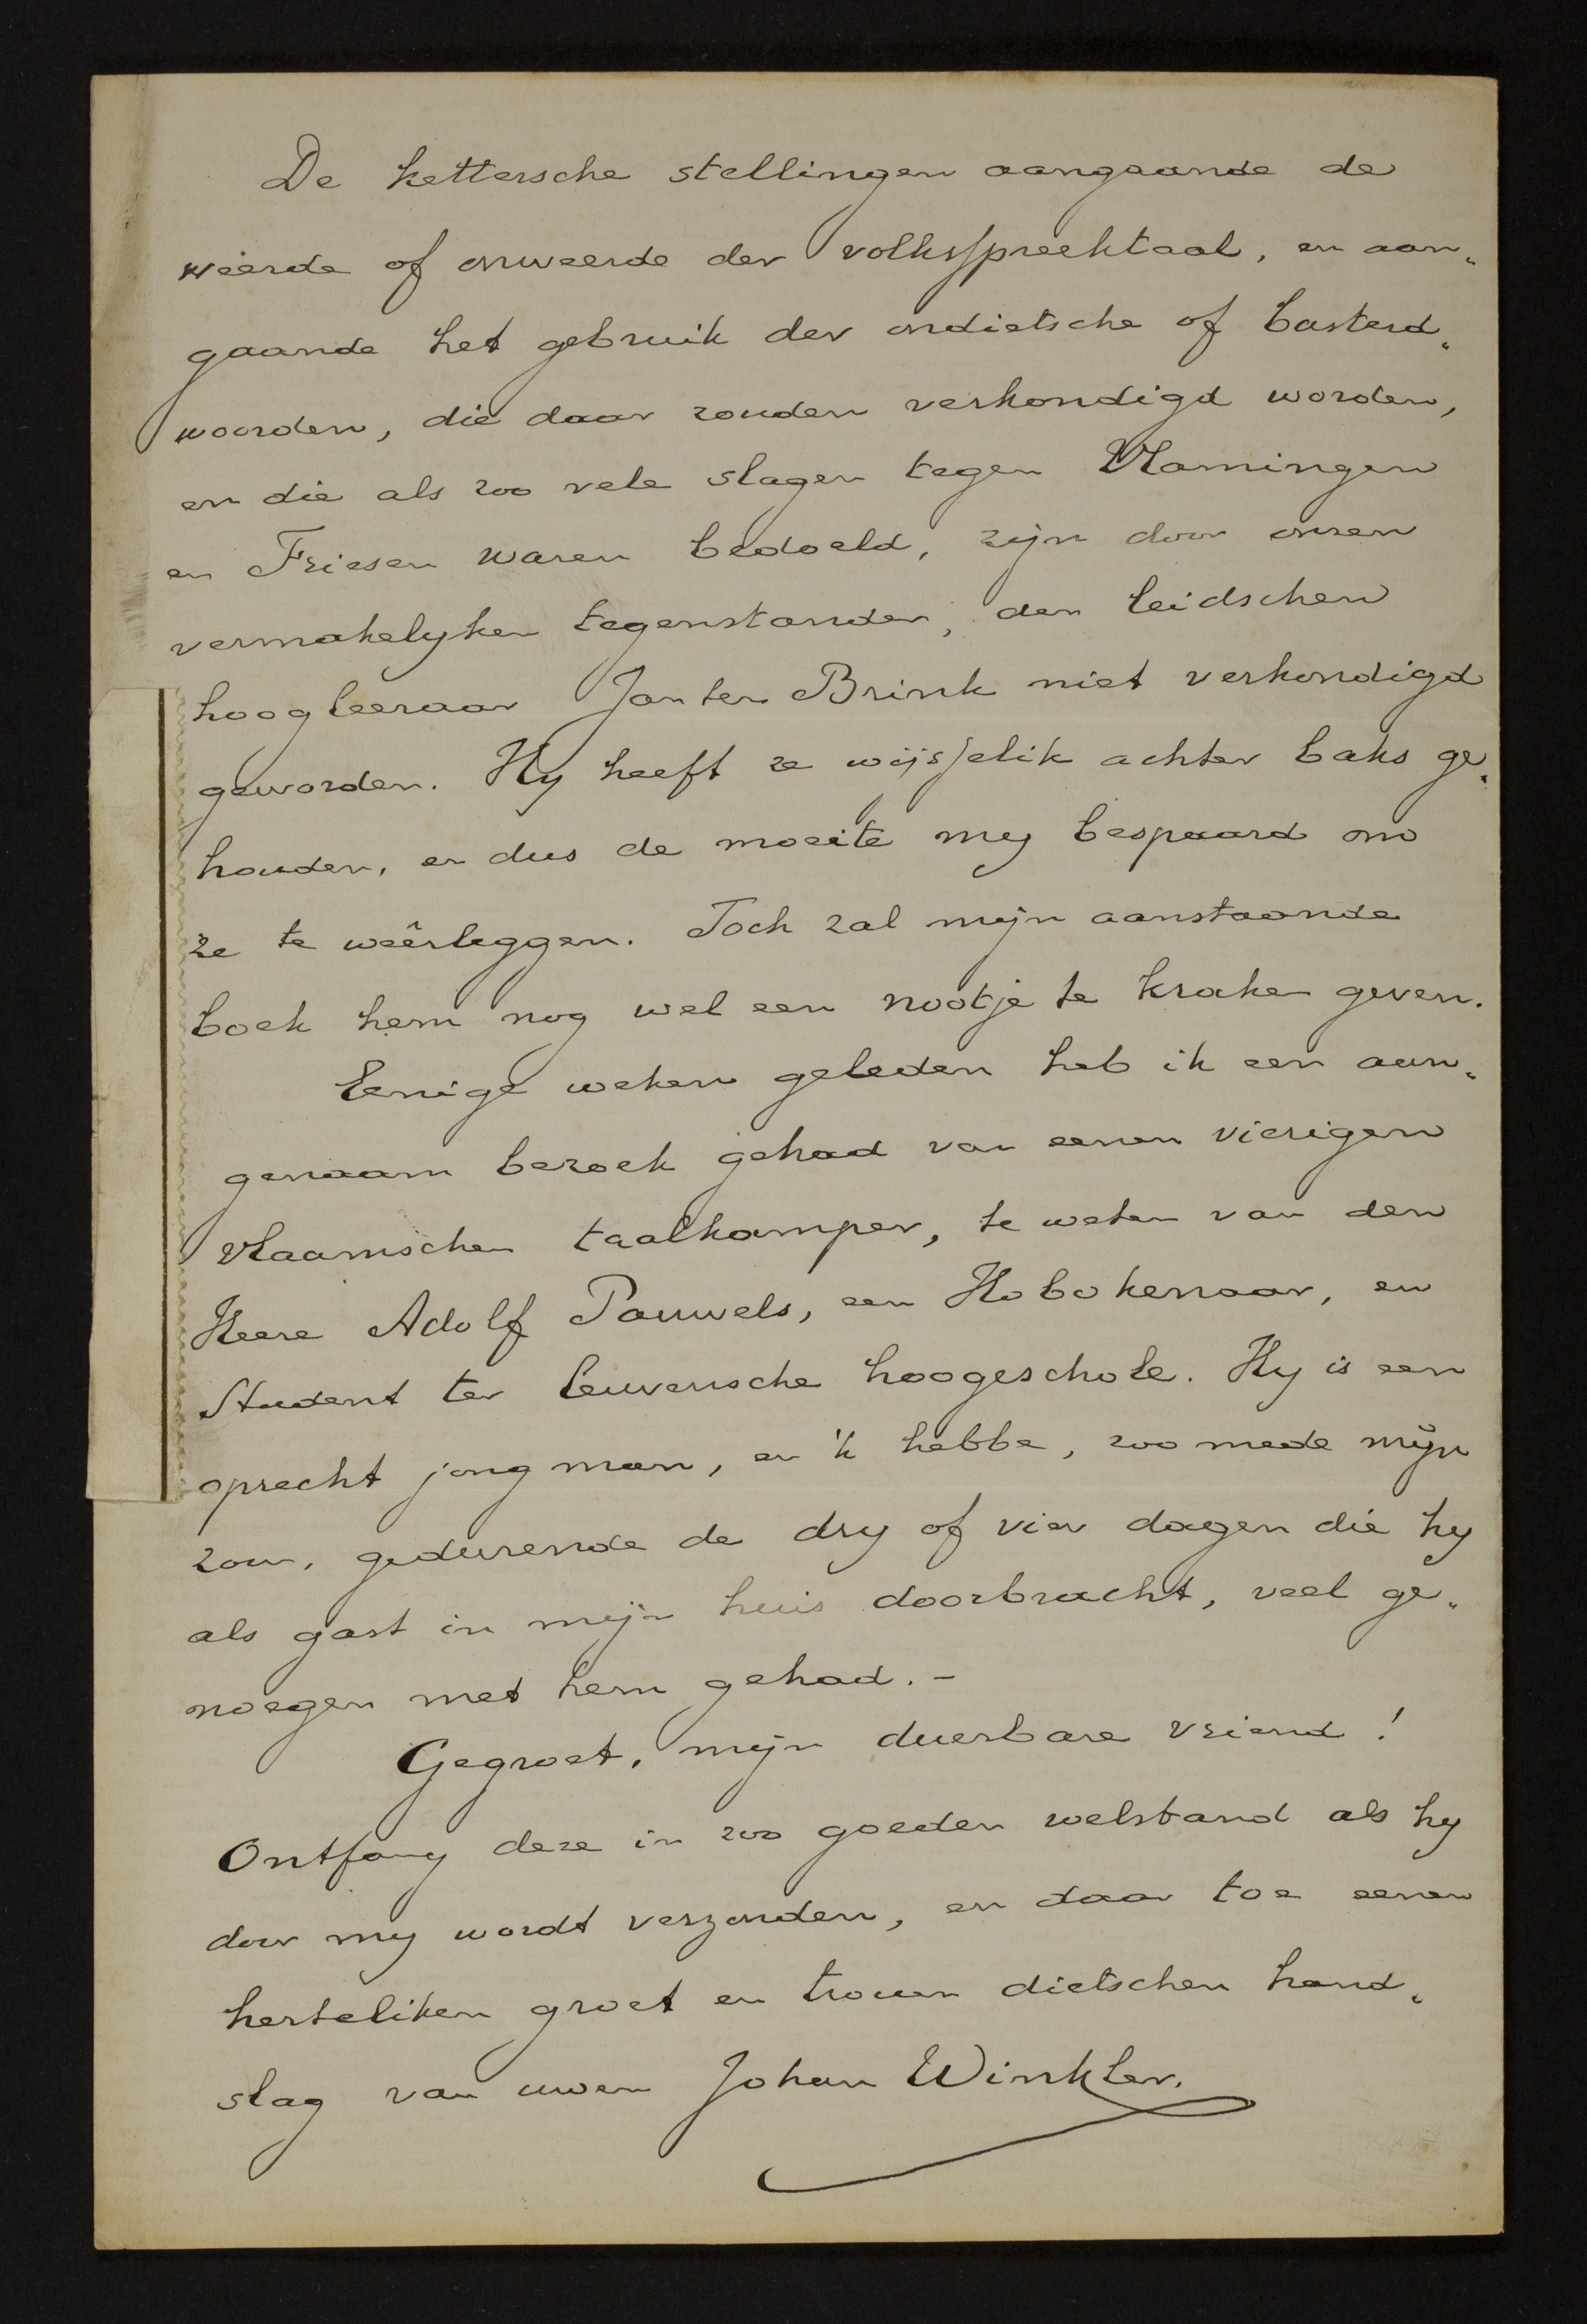 De kettersche stellingen aangaande de
weerde of onweerde der volksspreektaal, en aan„
gaande het gebruik der ondietsche of basterd„
woorden, die daar zouden verkondigd worden,
en die als zoo vele slagen tegen Vlamingen
en Friesen waren bedoeld, zijn door onzen
vermakelyken tegenstander, den leidschen
hoogleeraar Jan ten Brink niet verkondigd
geworden. Hy heeft ze wijsselik achter baks ge„
houden, en dus de moeite my bespaard om
ze te weêrleggen. Toch zal mijn aanstaande
boek hem nog wel een nootje te kraken geven.
Eenige weken geleden heb ik een aan„
genaam bezoek gehad van eenen vierigen
vlaamschen taalkamper, te weten van den
Heere Adolf Pauwels, een Hobokenaar, en
Student ter leuvensche hoogeschole. Hy is een
oprecht jong man, en 'k hebbe, zoo mede mijn
zoon, gedurende de dry of vier dagen die hy
als gast in mijn huis doorbracht, veel ge„
noegen met hem gehad. -
Gegroet, mijn duerbare vriend!
Ontfang deze in zoo goeden welstand als hy
door my wordt verzonden, en daar toe eenen
herteliken groet en trouen dietschen hand„
slag van uwen Johan Winkler.